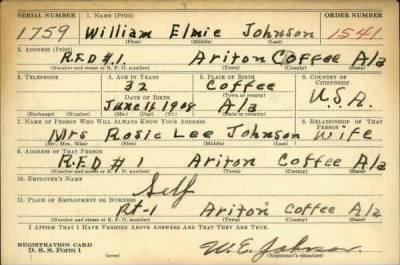 SERIAL NUMBER 1. NAME (Print) ORDER NUMBER
1759 William Elmie Johnson 1541
(First) (Middle) (Last)
2. ADDRESS (Print)
R.F.D #1. Ariton Coffee Ala
(Number and street or R. F. D. number) (Town) (County) (State)
3. TELEPHONE 4. AGE IN YEARS 5. PLACE OF BIRTH 6. COUNTRY OF CITIZENSHIP
32 Coffee
DATE OF BIRTH (Town or county)
June 14 1908 Ala U.S.A.
(Exchange) (Number) (Mo.) (Day) (Yr.) (State or country)
7. NAME OF PERSON WHO WILL ALWAYS KNOW YOUR ADDRESS 8. RELATIONSHIP OF THAT PERSON
Mrs Rosie Lee Johnson Wife
(Mr., Mrs., Miss) (First) (Middle) (Last)
9. ADDRESS OF THAT PERSON
R.F.D # 1 Ariton Coffee Ala
(Number and street or R. F. D. number) (Town) (County) (State)
10. EMPLOYER'S NAME
Self
11. PLACE OF EMPLOYMENT OR BUSINESS
Rt-1 Ariton Coffee Ala
(Number and street or R. F. D. number) (Town) (County) (State)
I AFFIRM THAT I HAVE VERIFIED ABOVE ANSWERS AND THAT THEY ARE TRUE.
REGISTRATION CARD
D. S. S. Form 1 W. E. Johnson
(Registrant's signature)